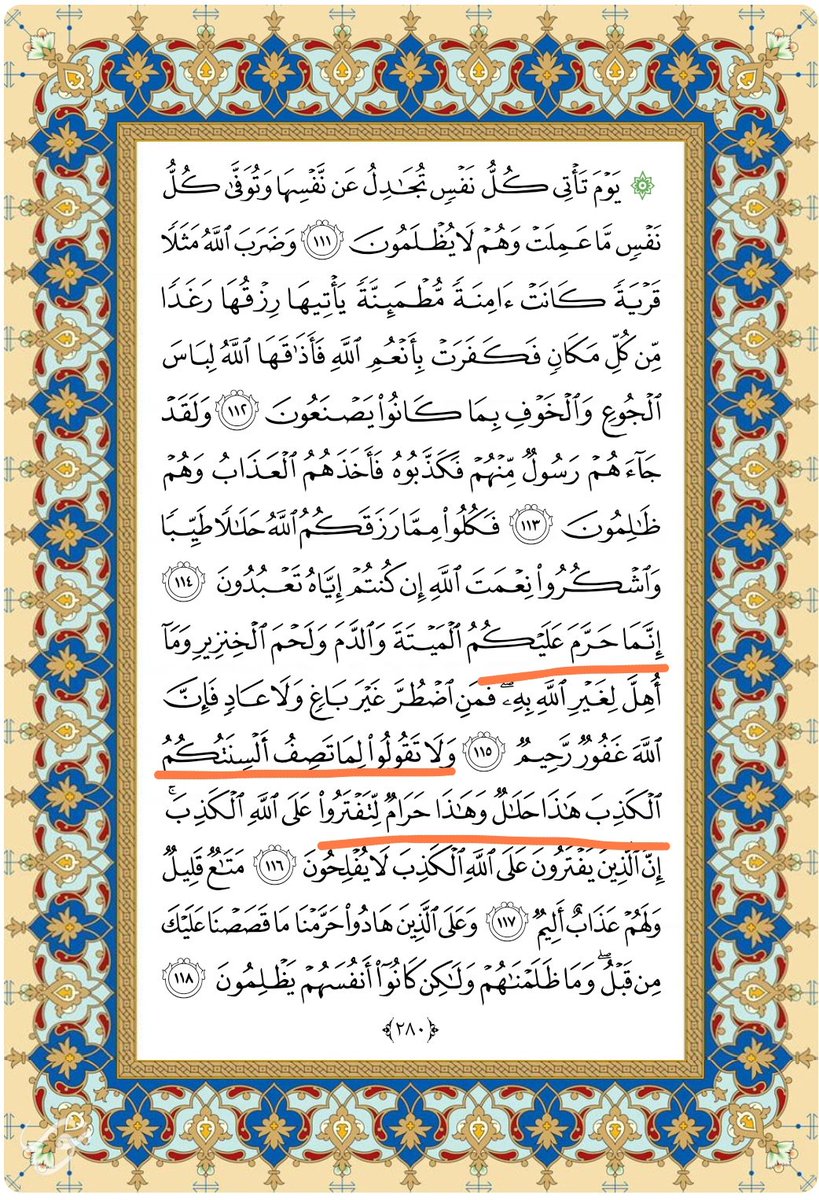 ۞ يَوۡمَ تَأۡتِي كُلُّ نَفۡسٖ تُجَٰدِلُ عَن نَّفۡسِهَا وَتُوَفَّىٰ كُلُّ
نَفۡسٖ مَّا عَمِلَتۡ وَهُمۡ لَا يُظۡلَمُونَ ١١١ وَضَرَبَ ٱللَّهُ مَثَلٗا
قَرۡيَةٗ كَانَتۡ ءَامِنَةٗ مُّطۡمَئِنَّةٗ يَأۡتِيهَا رِزۡقُهَا رَغَدٗا
مِّن كُلِّ مَكَانٖ فَكَفَرَتۡ بِأَنۡعُمِ ٱللَّهِ فَأَذَٰقَهَا ٱللَّهُ لِبَاسَ
ٱلۡجُوعِ وَٱلۡخَوۡفِ بِمَا كَانُواْ يَصۡنَعُونَ ١١٢ وَلَقَدۡ
جَآءَهُمۡ رَسُولٞ مِّنۡهُمۡ فَكَذَّبُوهُ فَأَخَذَهُمُ ٱلۡعَذَابُ وَهُمۡ
ظَٰلِمُونَ ١١٣ فَكُلُواْ مِمَّا رَزَقَكُمُ ٱللَّهُ حَلَٰلٗا طَيِّبٗا
وَٱشۡكُرُواْ نِعۡمَتَ ٱللَّهِ إِن كُنتُمۡ إِيَّاهُ تَعۡبُدُونَ ١١٤
إِنَّمَا حَرَّمَ عَلَيۡكُمُ ٱلۡمَيۡتَةَ وَٱلدَّمَ وَلَحۡمَ ٱلۡخِنزِيرِ وَمَآ
أُهِلَّ لِغَيۡرِ ٱللَّهِ بِهِۦۖ فَمَنِ ٱضۡطُرَّ غَيۡرَ بَاغٖ وَلَا عَادٖ فَإِنَّ
ٱللَّهَ غَفُورٞ رَّحِيمٞ ١١٥ وَلَا تَقُولُواْ لِمَا تَصِفُ أَلۡسِنَتُكُمُ
ٱلۡكَذِبَ هَٰذَا حَلَٰلٞ وَهَٰذَا حَرَامٞ لِّتَفۡتَرُواْ عَلَى ٱللَّهِ ٱلۡكَذِبَۚ
إِنَّ ٱلَّذِينَ يَفۡتَرُونَ عَلَى ٱللَّهِ ٱلۡكَذِبَ لَا يُفۡلِحُونَ ١١٦ مَتَٰعٞ قَلِيلٞ
وَلَهُمۡ عَذَابٌ أَلِيمٞ ١١٧ وَعَلَى ٱلَّذِينَ هَادُواْ حَرَّمۡنَا مَا قَصَصۡنَا عَلَيۡكَ
مِن قَبۡلُۖ وَمَا ظَلَمۡنَٰهُمۡ وَلَٰكِن كَانُوٓاْ أَنفُسَهُمۡ يَظۡلِمُونَ ١١٨
﴿٢٨٠﴾